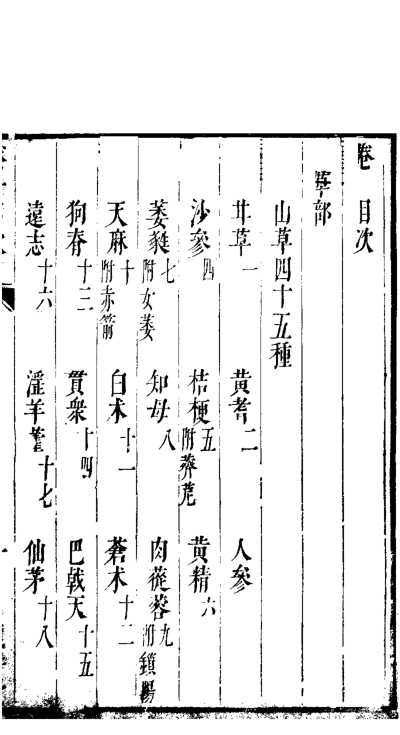 卷 目次
草部
山草四十五種
甘草一 黄耆二 人參
沙參四 桔梗五附薺苨 黄精六
萎蕤七附女萎 知母八 肉蓯蓉九附鎖陽
天麻十附赤箭 白术十一 蒼术十二
狗脊十三 貫衆十四 巴戟天十五
遠志十六 淫羊藿十七 仙茅十八